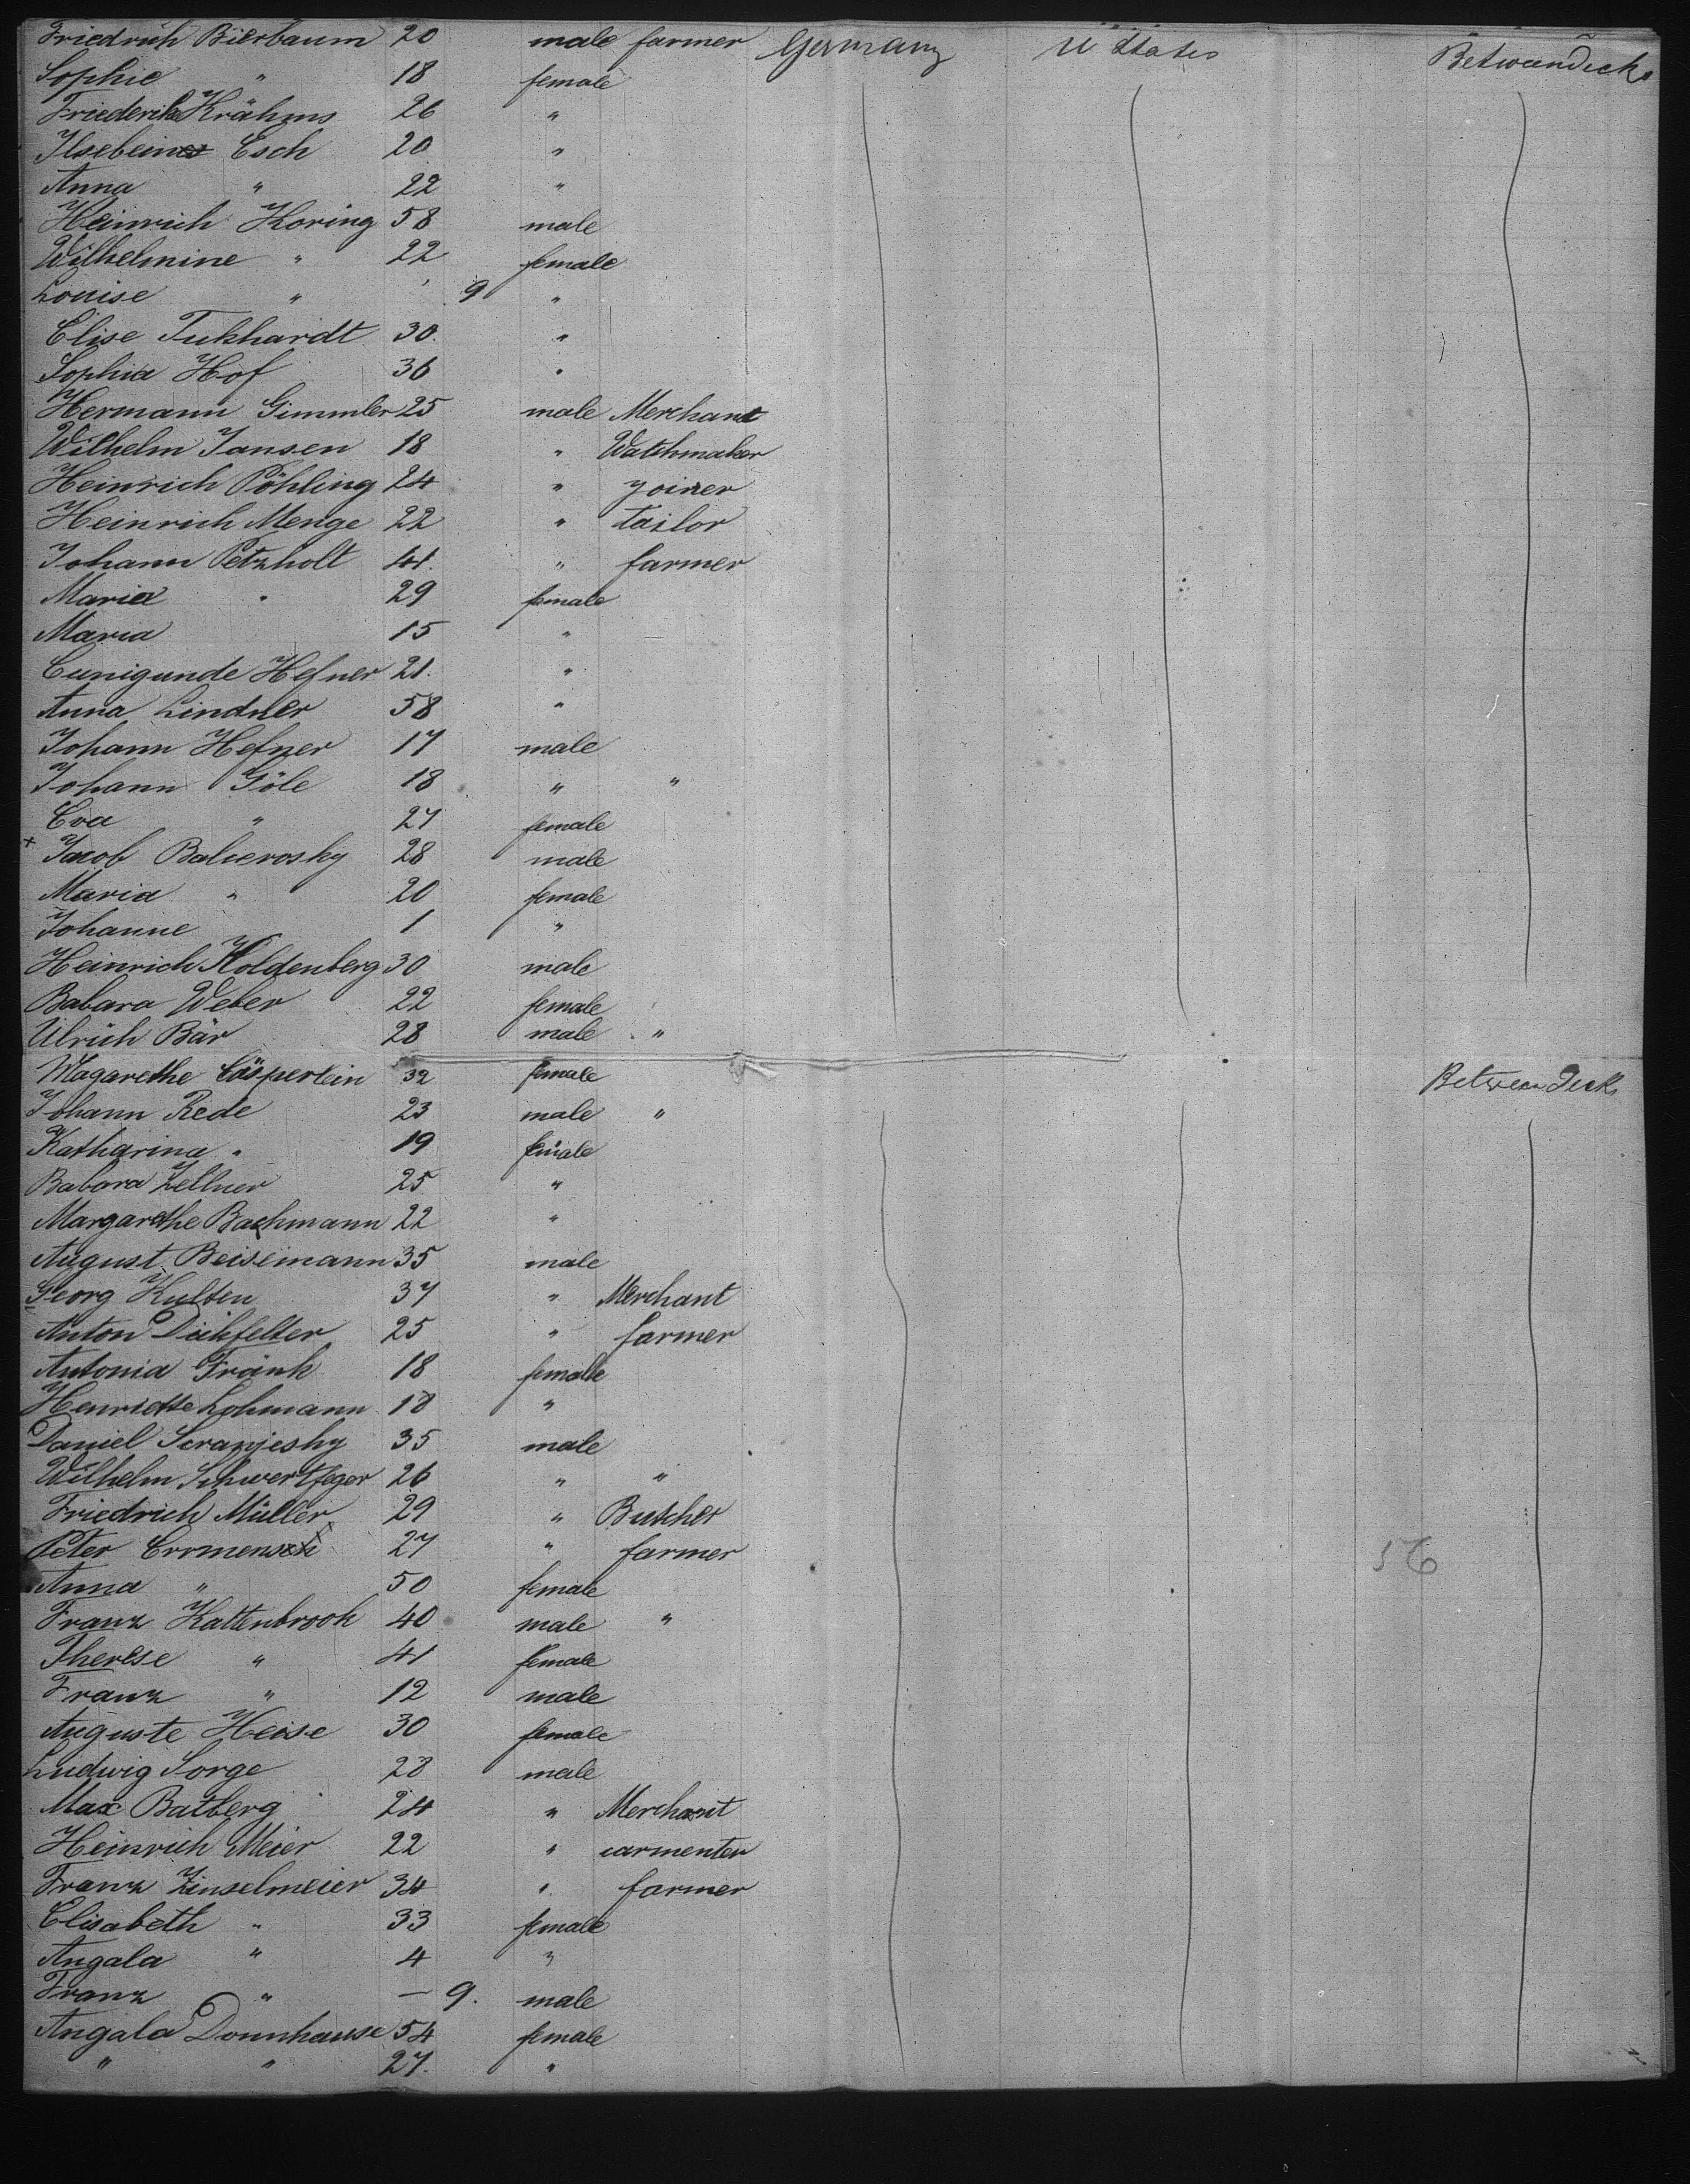 Friedrich Bierbaum 20 male farmer Germany U States Betweendeck
Sophie " 18 female
Friederike Krähms 26 "
Ilsebein Esch 20 "
Anna " 22 "
Heinrich Koring 58 male
Wilhelmine " 22 female
Louise " ' 9 "
Elise Tukhardt 30. "
Sophia Hof 36 "
Hermann Gimmler 25 male Merchant
Wilhelm Jansen 18 " Watchmaker
Heinrich Pöhling 24 " Joiner
Heinrich Menge 22 " Tailor
Johann Petzholt 41. " farmer
Maria " 29 female
Maria 15 "
Cunigunde Hefner 21. "
Anna Lindner 58 "
Johann Hefner 17 male
Johann Göle 18 " "
Eva " 27 female
+ Jacob Balierosky 28 male
Maria " 20 female
Johanne 1 "
Heinrich Holdenberg 30 male
Babara Weber 22 female
Ulrich Bär 28 male "
Magarethe Cäsperlein 32 female Between Deck
Johann Rede 23 male "
Katharina " 19 female
Babara Zellner 25 "
Margarethe Bachmann 22 "
August Beisemann 35 male
Georg Kulten 37 " Merchant
Anton Dichfelter 25 " farmer
Antonia Fränk 18 female
Henriette Lohmann 18 "
Daniel Scranjesky 35 male
Wilhelm Schwertfeger 26 " "
Friedrich Müller 29 " Butcher
Peter Crrmensch 27 " farmer 56
Anna " 50 female
Franz Kattenbrook 40 male "
Therese " 41 female
Franz " 12 male
Auguste Heise 30 female
Ludwig Sorge 28 male
Max Batberg 24 " Merchant
Heinrich Meier 22 " carmenter
Franz Zinselmeier 34 " farmer
Elisabeth " 33 female
Angala " 4 "
Franz " — 9. male
Angala Donnhause 54 female
" " 27. "